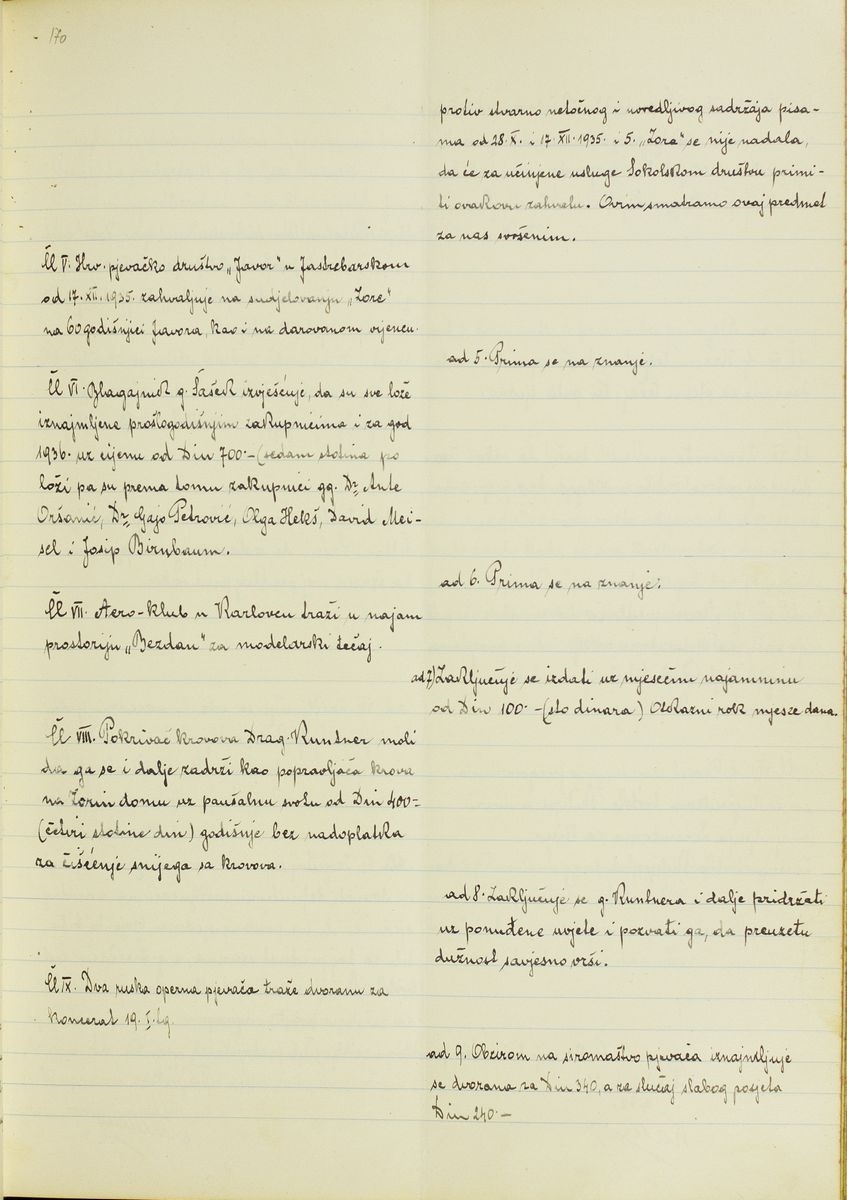 170
protiv stvarno netočnog i uvredljivog sadržaja pisa-
ma od 28. X. i 17. XII. 1935. i 5. „Zora“ se nije nadala,
da će za učinjene usluge Sokolskom društvu primi-
ti ovakovu zahvalu. Ovim smatramo ovaj predmet
za nas svršenim.
Čl V. Hrv. pjevačko društvo „Javor“ u Jastrebarskom
od 17. XII. 1935. zahvaljuje na sudjelovanju „Zore“
na 60 godišnjici Javora, kao i na darovanom vijencu.
ad 5. Prima se na znanje.
Čl VI. Blagajnik g. Šašek izvješćuje, da su sve lože
iznajmljene prošlogodišnjim zakupnicima i za god
1936. uz cijenu od Din 700.— (sedam stotina po
loži pa su prema tomu zakupnici gg. Dr. Ante
Oršanić, Dr. Gajo Petrović, Olga Hekš, David Mei-
sel i Josip Birnbaum.
ad 6. Prima se na znanje.
Čl VII. Aero-klub u Karlovcu traži u najam
prostoriju „Bezdan“ za modelarski tečaj.
ad 7) Zaključuje se izdati uz mjesečnu najamninu
od Din 100.— (sto dinara) Otkazni rok mjesec dana.
Čl VIII. Pokrivač krovova Drag. Kuntner moli
da ga se i dalje zadrži kao popravljača krova
na Zorin domu uz paušalnu svotu od Din 400.=
(četiri stotine din) godišnje bez nadoplatka
za čišćenje snijega sa krovova.
ad 8. Zaključuje se g. Kuntnera i dalje pridržati
uz ponuđene uvjete i pozvati ga, da preuzetu
dužnost savjesno vrši.
Čl IX. Dva ruska operna pjevača traže dvoranu za
koncerat 19. I. tg.
ad 9. Obzirom na siromaštvo pjevača iznajmljuje
se dvorana za Din 340, a za slučaj slabog posjeta
Din 240.—